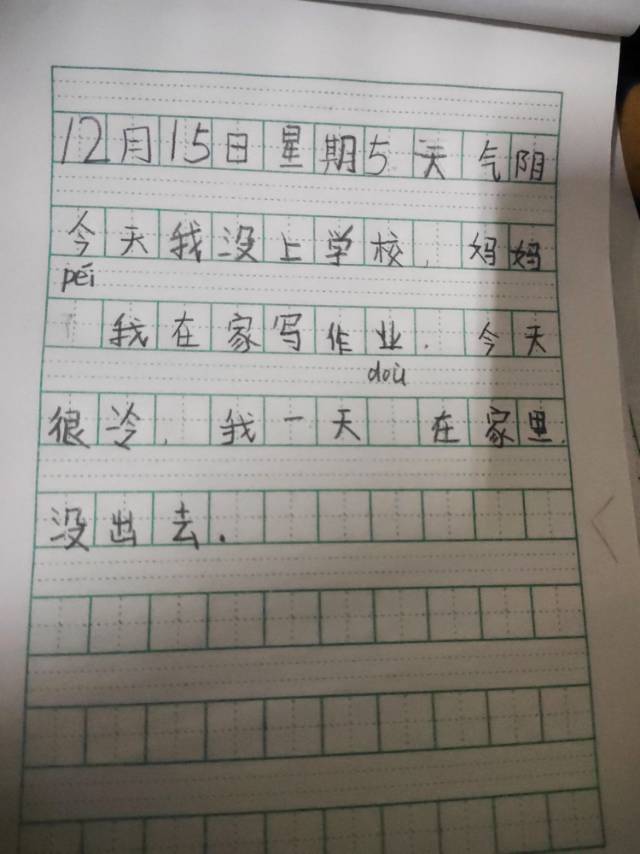 12月15日星期5天气阴
今天我没上学校,妈妈
péi
我在家写作业.今天
doù
很冷,我一天 在家里,
没出去.